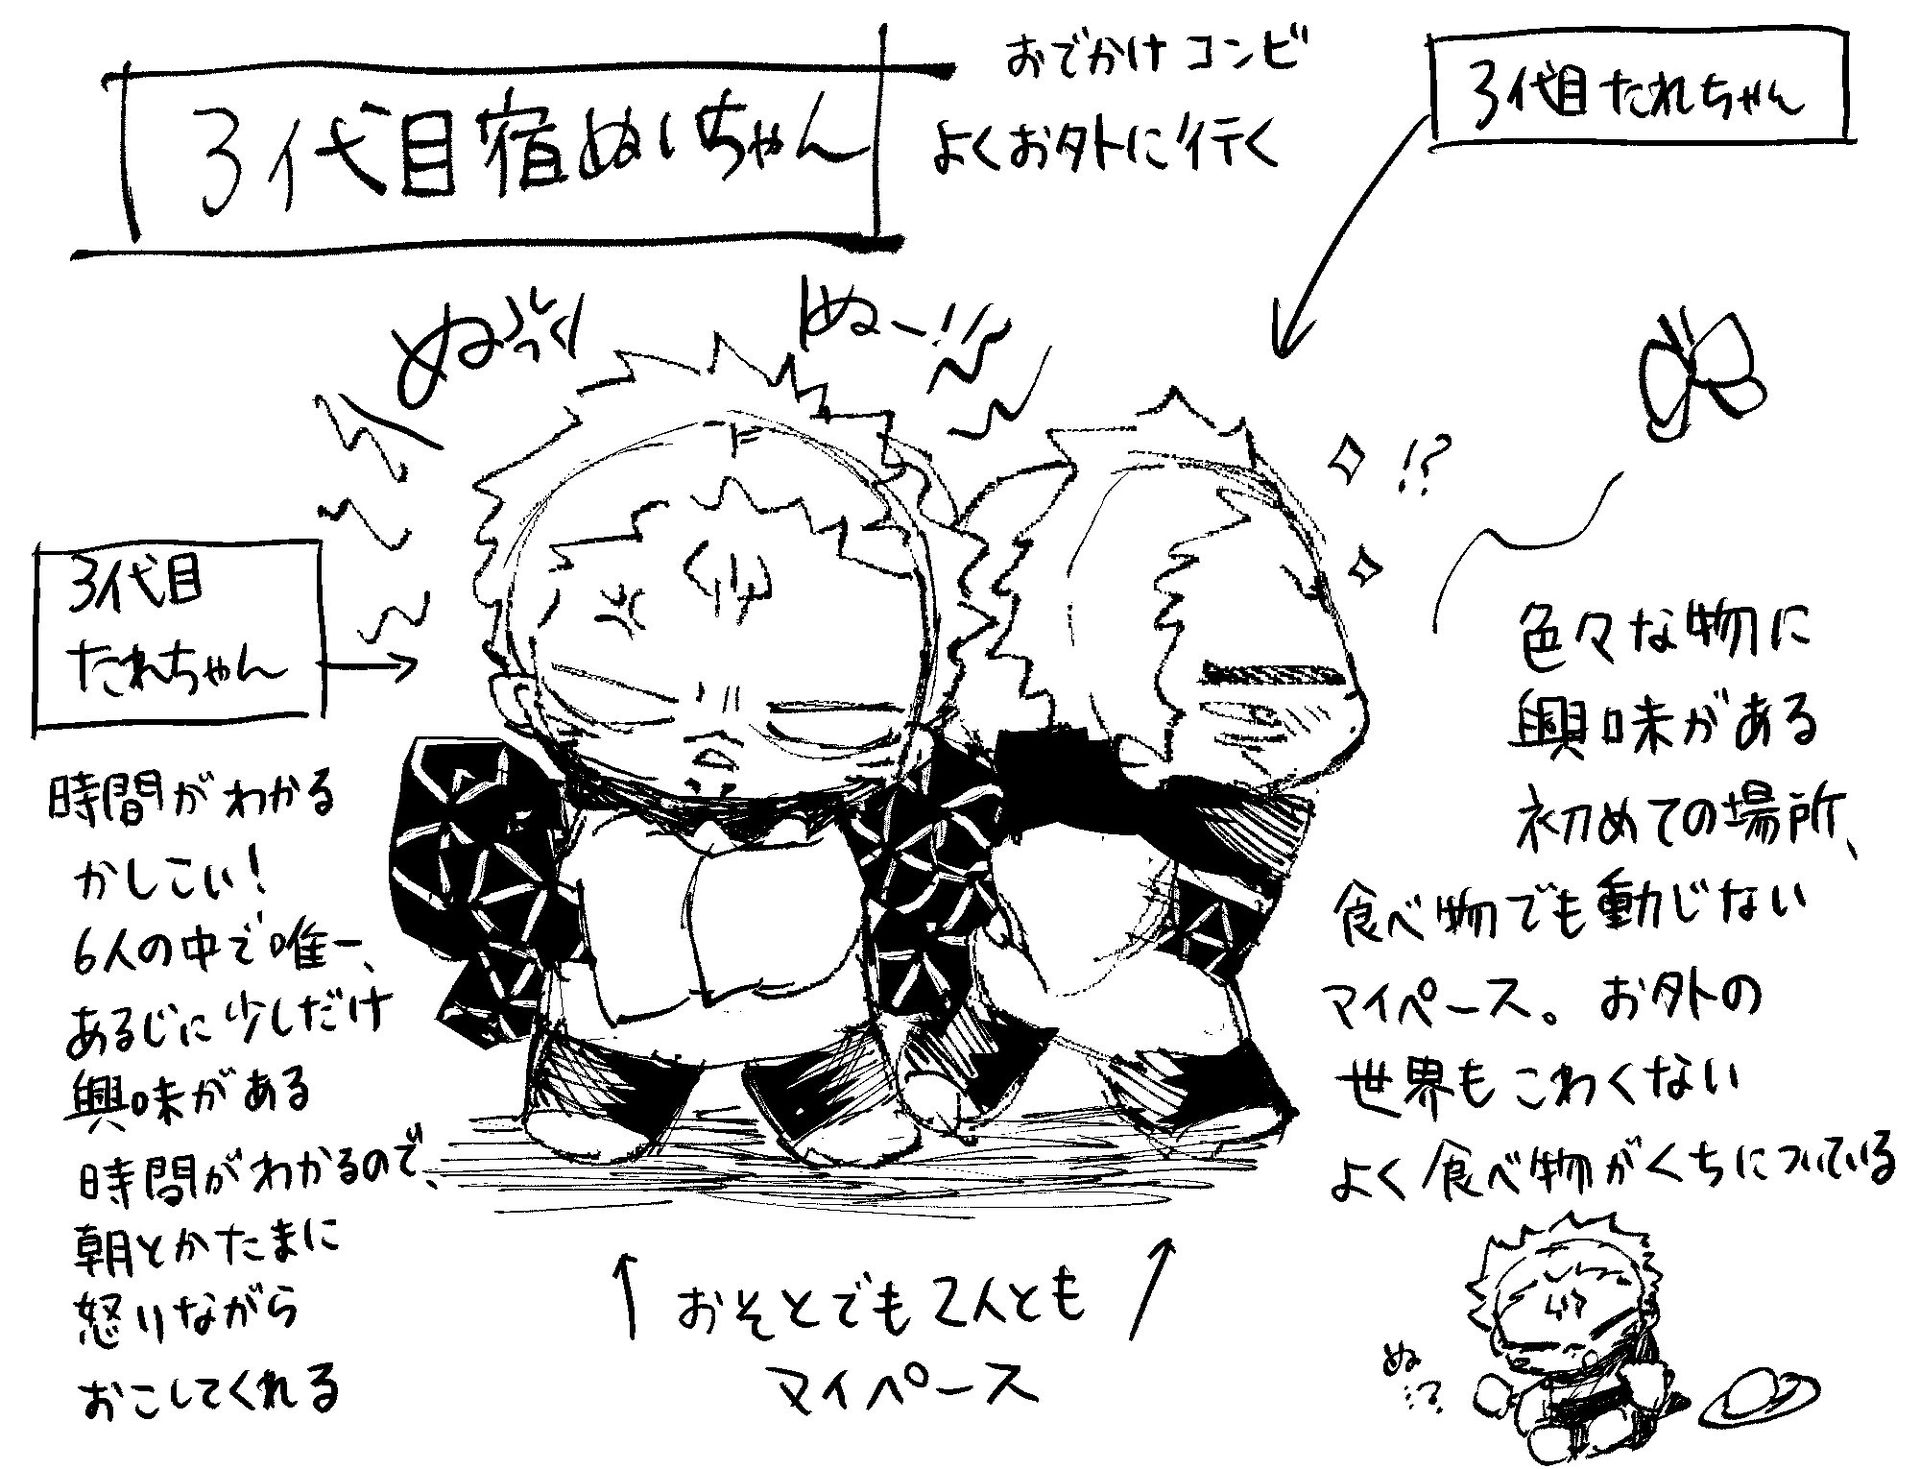 3代目宿ぬいちゃん
おでかけコンビ
よくお外に行く
3代目たれちゃん
ぬっ
ぬー!!
!?
3代目
たれちゃん
時間がわかる
かしこい!
6人の中で唯一、
あるじに少しだけ
興味がある
時間がわかるので、
朝とかたまに
怒りながら
おこしてくれる
色々な物に
興味がある
初めての場所、
食べ物でも動じない
マイペース。お外の
世界もこわくない
よく食べ物がくちについている
おそとでも2人とも
マイペース
ぬ
…?